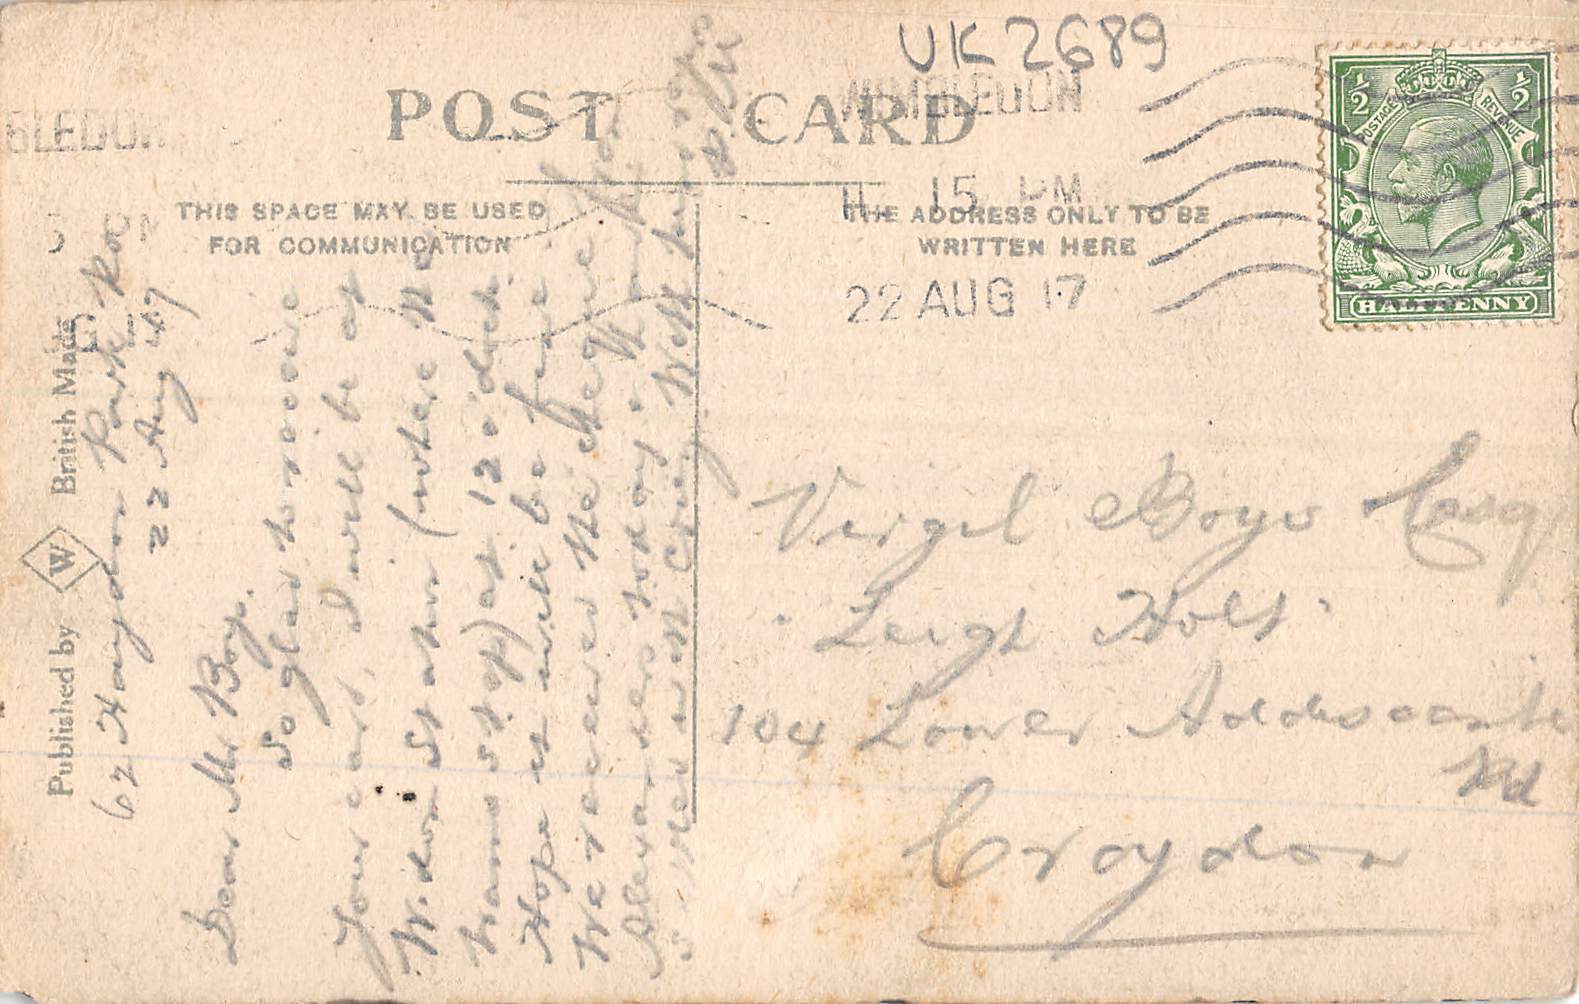 UK 2689
POST CARD
WIMBLEDON
11 15 PM
22 AUG 17
½ ½
POSTAGE REVENUE
HALFPENNY
THIS SPACE MAY BE USED
FOR COMMUNICATION
THE ADDRESS ONLY TO BE
WRITTEN HERE
Published by W British Made
67 Haydon Park Rd
22 Aug 1917
Dear Mr Boys.
So glad to receive
your card, I will be at
Wdon Station (where the
trams stop) at 12 o'clock
Hope it will be fine.
We received the cheque from
Alexanders today.
Virgil Boys Esq
"Leigh Holt"
104 Lower Addiscombe
Rd
Croydon